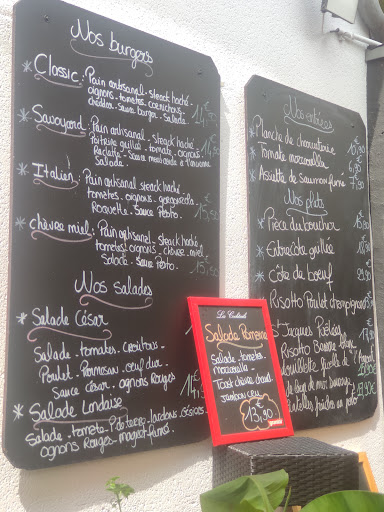 Nos burgers
* Classic : Pain artisanal. steack haché
oignons. tomates. cornichons
cheddar. sauce burger. Salade
* Savoyard : Pain artisanal. steack haché
Poitrine grillée. tomate. oignons
Raclette. Sauce
Salade
* Italien : Pain artisanal steack haché
tomates. oignons. gorgonzola
Roquette. Sauce Pesto. 15,90
* chèvre miel : Pain artisanal. steack haché
tomates. oignons. chèvre. miel
Salade. Sauce Pesto. 15,90
Nos salades
* Salade César
Salade. tomates. croûtons
Poulet. Parmesan. oeuf dur
Sauce césar. oignons Rouges
* Salade Landaise
Salade. tomate. P de terre. lardons. gésiers
oignons Rouges. magret fumé
Nos entrées
* Planche de charcuterie
* Tomate mozzarella
* Assiette de Saumon fumé
Nos plats
* Pièce du boucher
* Entrecôte grillée
* Côte de boeuf
* Risotto Poulet champignons
St Jacques Poêlées
Risotto
La Cocktail
Salade Romaine
Salade. tomates.
mozzarella
Toast chèvre chaud.
jambon cru
13,90